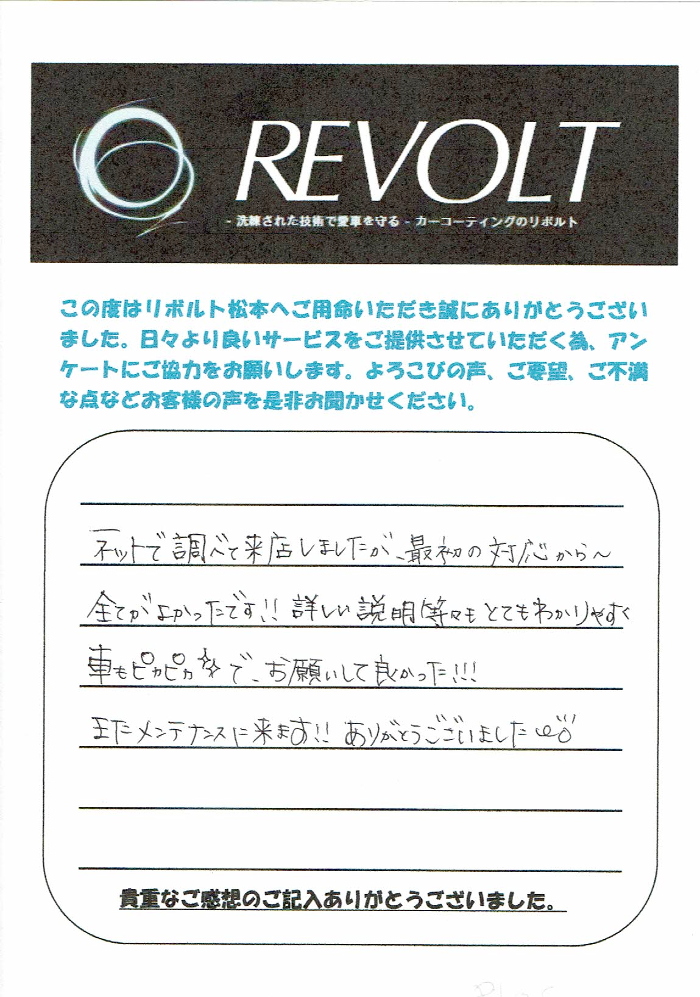 REVOLT
- 洗練された技術で愛車を守る - カーコーティングのリボルト
この度はリボルト松本へご用命いただき誠にありがとうござい
ました。日々より良いサービスをご提供させていただく為、アン
ケートにご協力をお願いします。よろこびの声、ご要望、ご不満
な点などお客様の声を是非お聞かせください。
ネットで調べて来店しましたが、最初の対応から〜
全てがよかったです!! 詳しい説明等々もとてもわかりやすく
車もピカピカ☆☆で、お願いして良かった!!!
またメンテナンスに来ます!! ありがとうございました
貴重なご感想のご記入ありがとうございました。